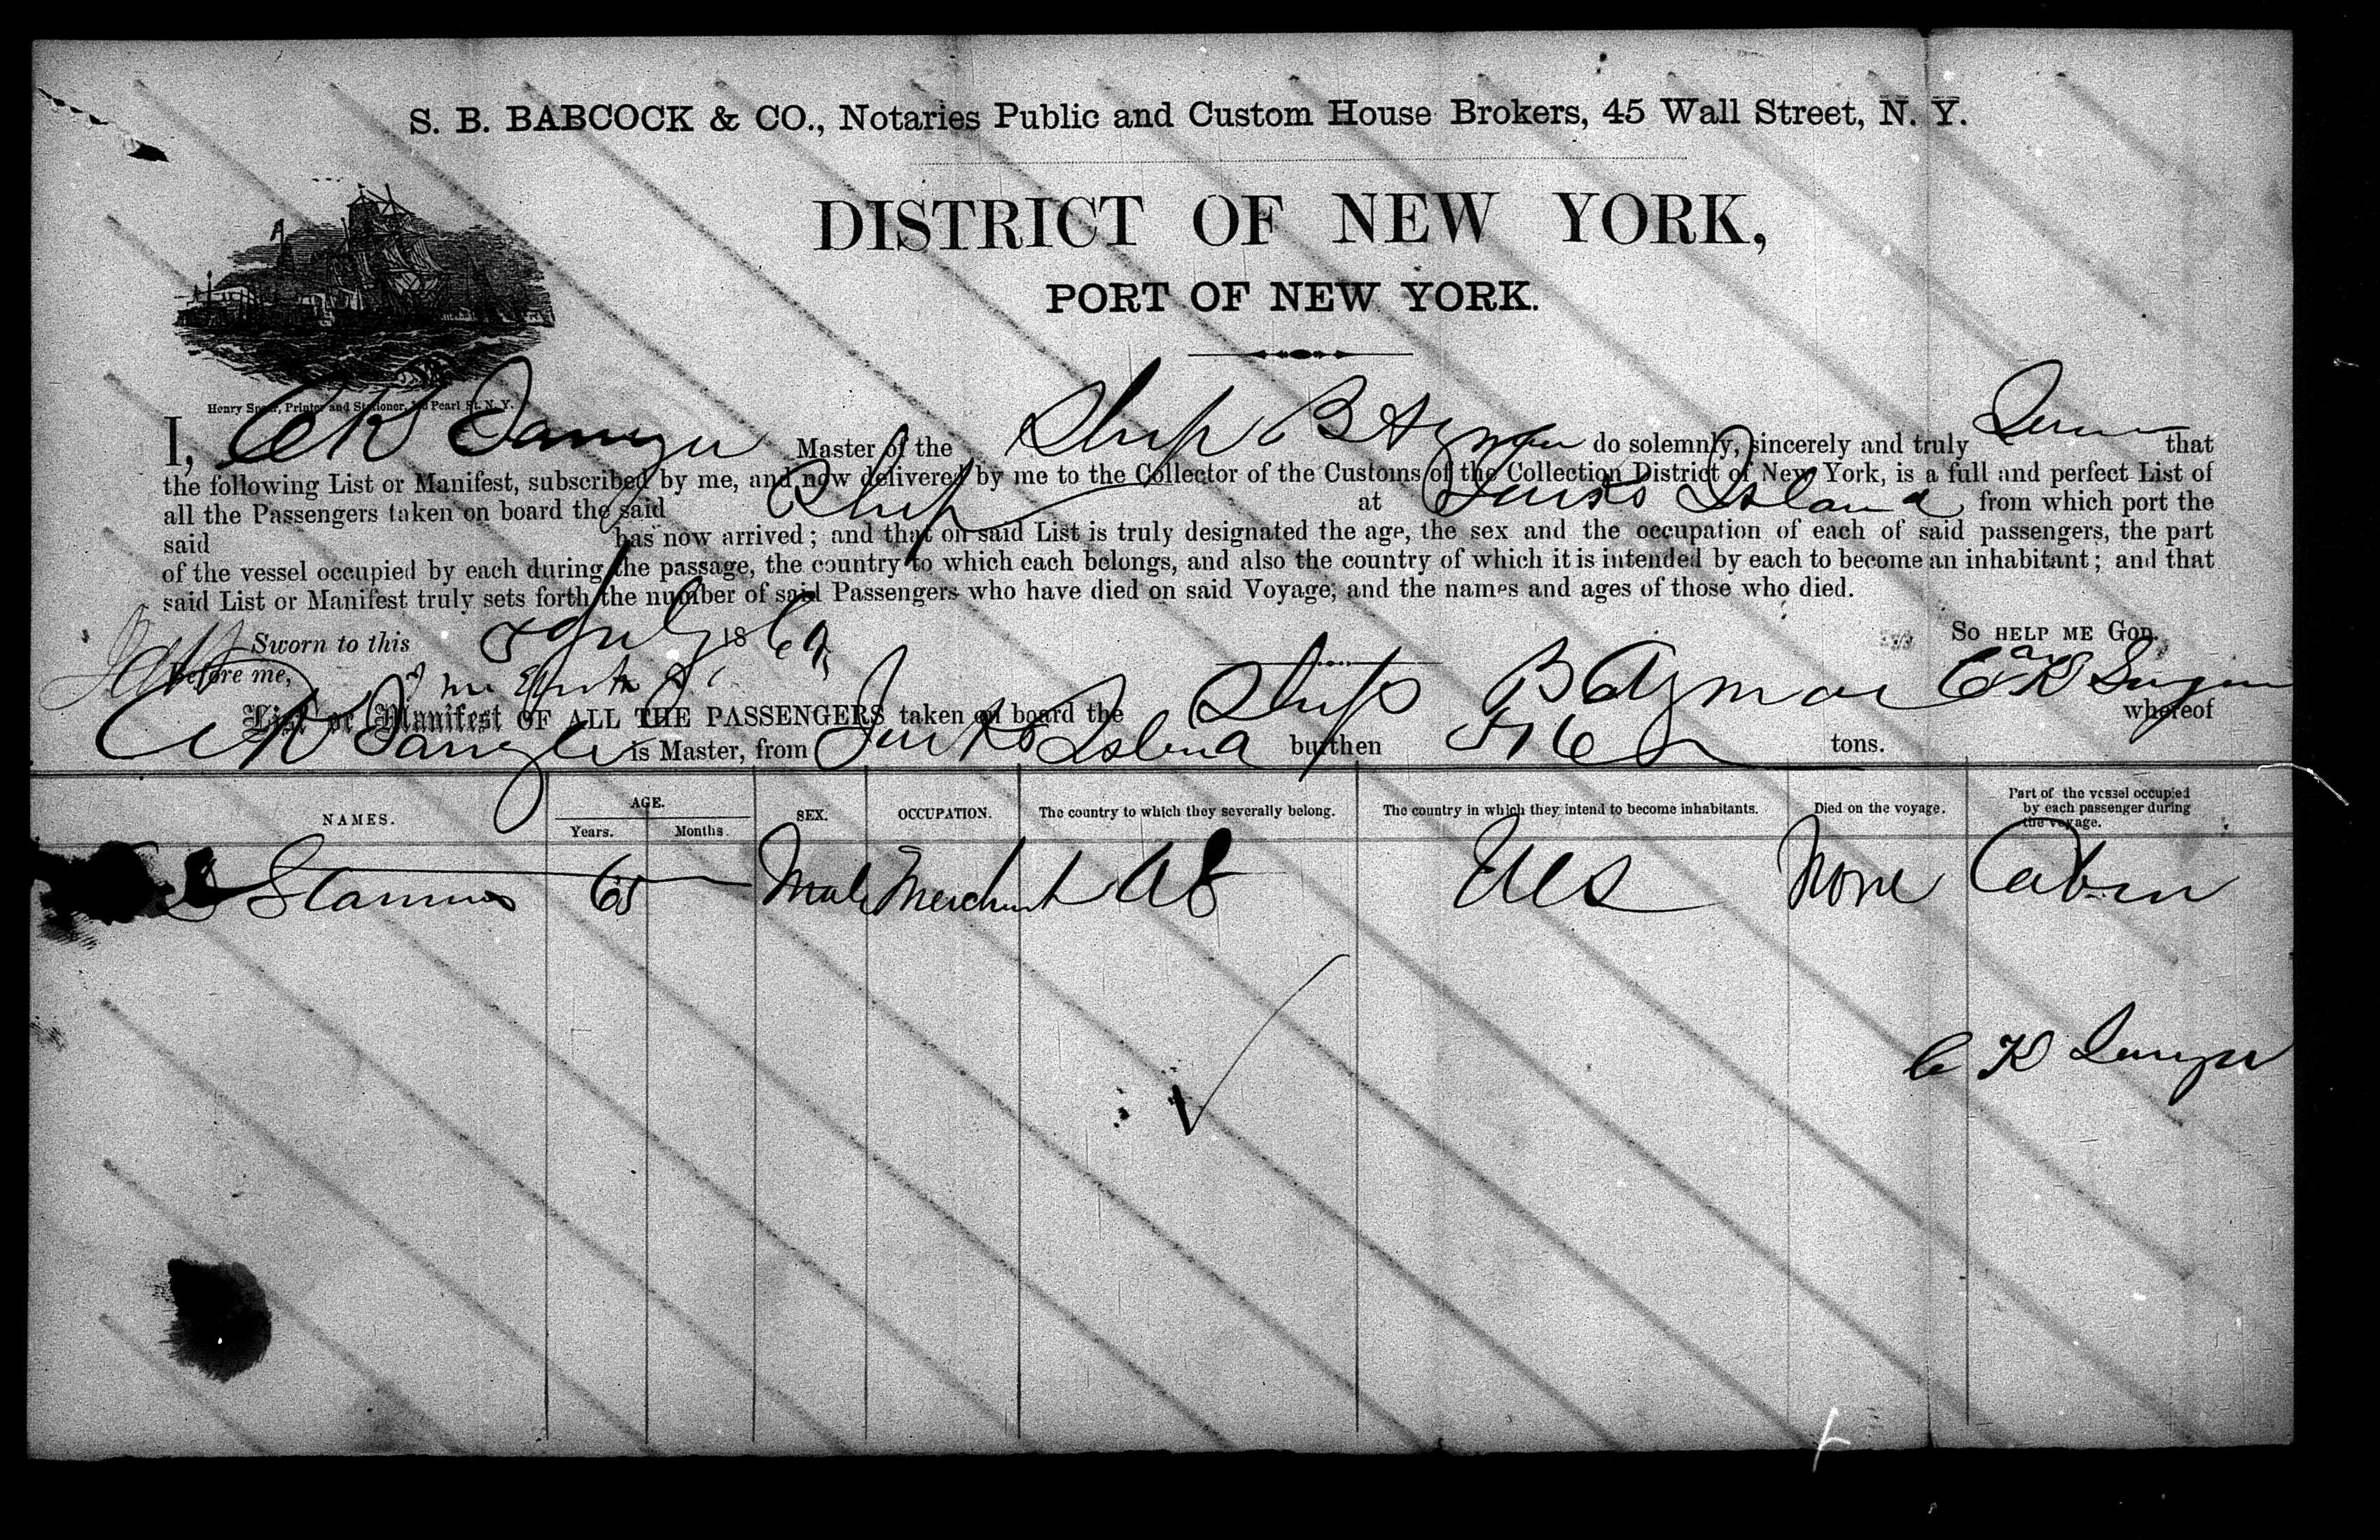 S. B. BABCOCK & CO., Notaries Public and Custom House Brokers, 45 Wall Street, N. Y.
DISTRICT OF NEW YORK,
PORT OF NEW YORK.
Henry Spear, Printer and Stationer, Pearl St. N. Y.
I, Master of the Ship B Aymar do solemnly, sincerely and truly Swear that
the following List or Manifest, subscribed by me, and now delivered by me to the Collector of the Customs of the Collection District of New York, is a full and perfect List of
all the Passengers taken on board the said Ship at Turks Island from which port the
said has now arrived; and that on said List is truly designated the age, the sex and the occupation of each of said passengers, the part
of the vessel occupied by each during the passage, the country to which each belongs, and also the country of which it is intended by each to become an inhabitant; and that
said List or Manifest truly sets forth the number of said Passengers who have died on said Voyage, and the names and ages of those who died.
Sworn to this July 1869 So HELP ME GOD.
Before me,
List or Manifest OF ALL THE PASSENGERS taken on board the Ship B Aymar whereof
is Master, from Turks Island burthen tons.
NAMES. AGE. Years. Months. SEX. OCCUPATION. The country to which they severally belong. The country in which they intend to become inhabitants. Died on the voyage. Part of the vessel occupied by each passenger during the voyage.
65 Male Merchant US None Cabin